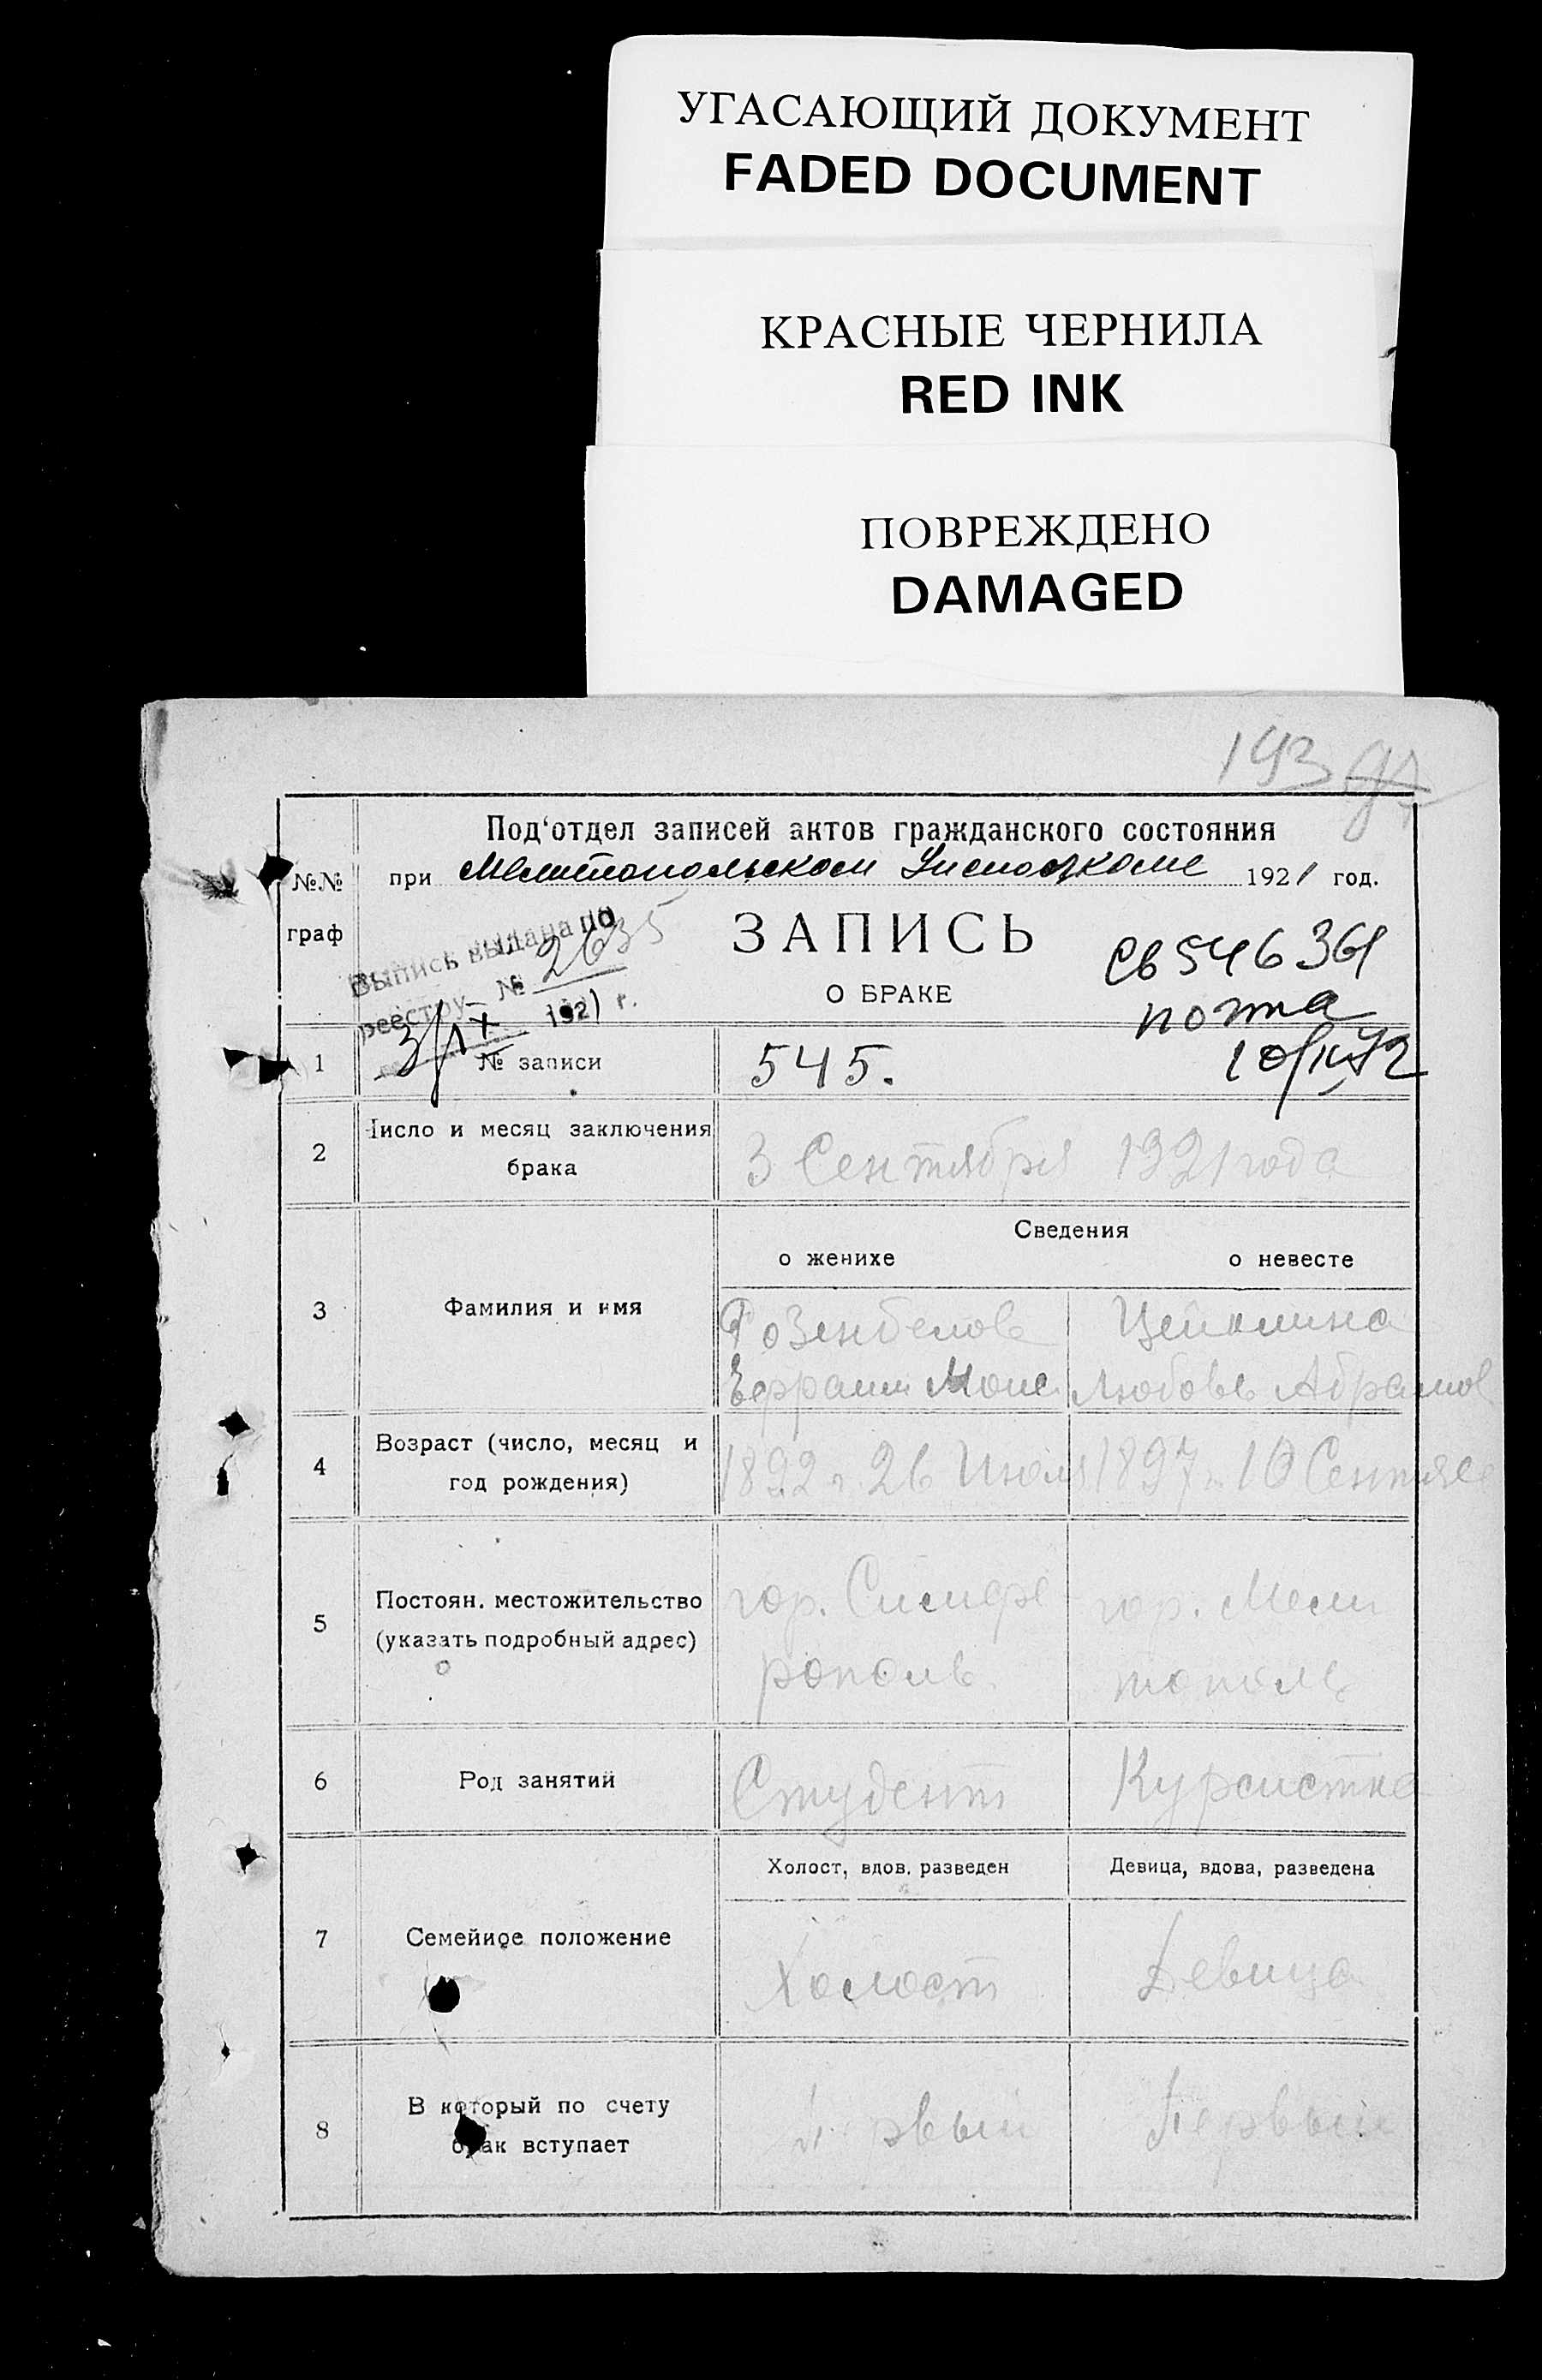 УГАСАЮЩИЙ ДОКУМЕНТ
FADED DOCUMENT
КРАСНЫЕ ЧЕРНИЛА
RED INK
ПОВРЕЖДЕНО
DAMAGED
193
Под'отдел записей актов гражданского состояния
№.№ граф
при Мелитопольском 1921 год.
Выпись выдана по
реестру № 2635
3/IX 1921 г.
ЗАПИСЬ
О БРАКЕ
СВ 546361
почта
1 № записи 545.
2 Число и месяц заключения брака 3 Сентября 1921 года
Сведения
о женихе о невесте
3 Фамилия и имя
Цейтлина
Ефраим Моис Любовь Абрамов
4 Возраст (число, месяц и год рождения) 1892 г. 26 Июля 1897 г. 10
5 Постоян. местожительство (указать подробный адрес)
гор. Симфе гор. Мели
рополь тополь
6 Род занятий Студент Курсистка
Холост, вдов. разведен Девица, вдова, разведена
7 Семейное положение Холост Девица
8 В который по счету брак вступает Первый Первый